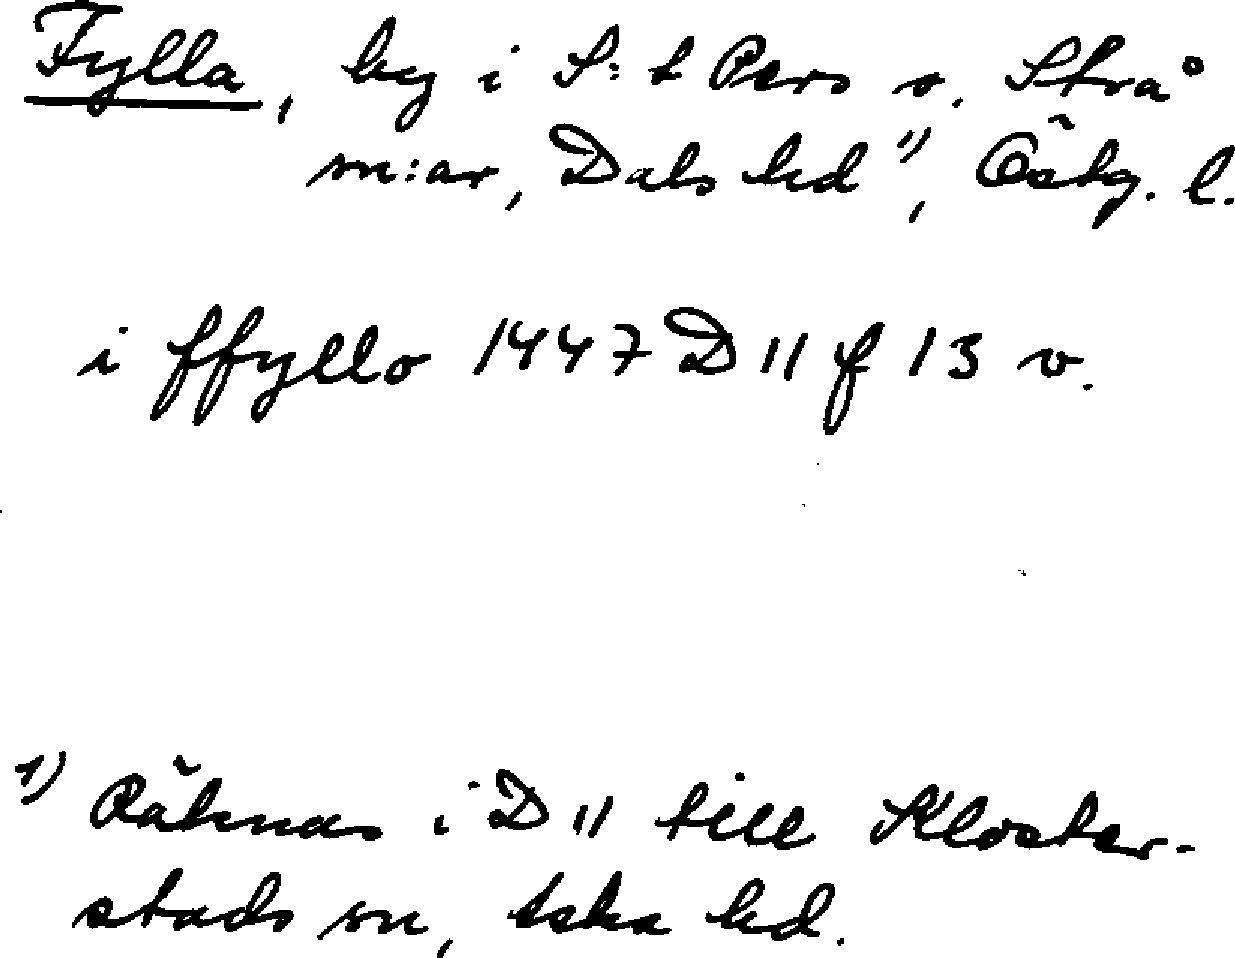 Fylla, by i S:t Pers o. Strå
sn:ar, Dals hd 1), Östg. l.
i ffyllo 1447 D 11 f 13 v.
1) Räknas i D 11 till Kloster-
stads sn, Aska hd.